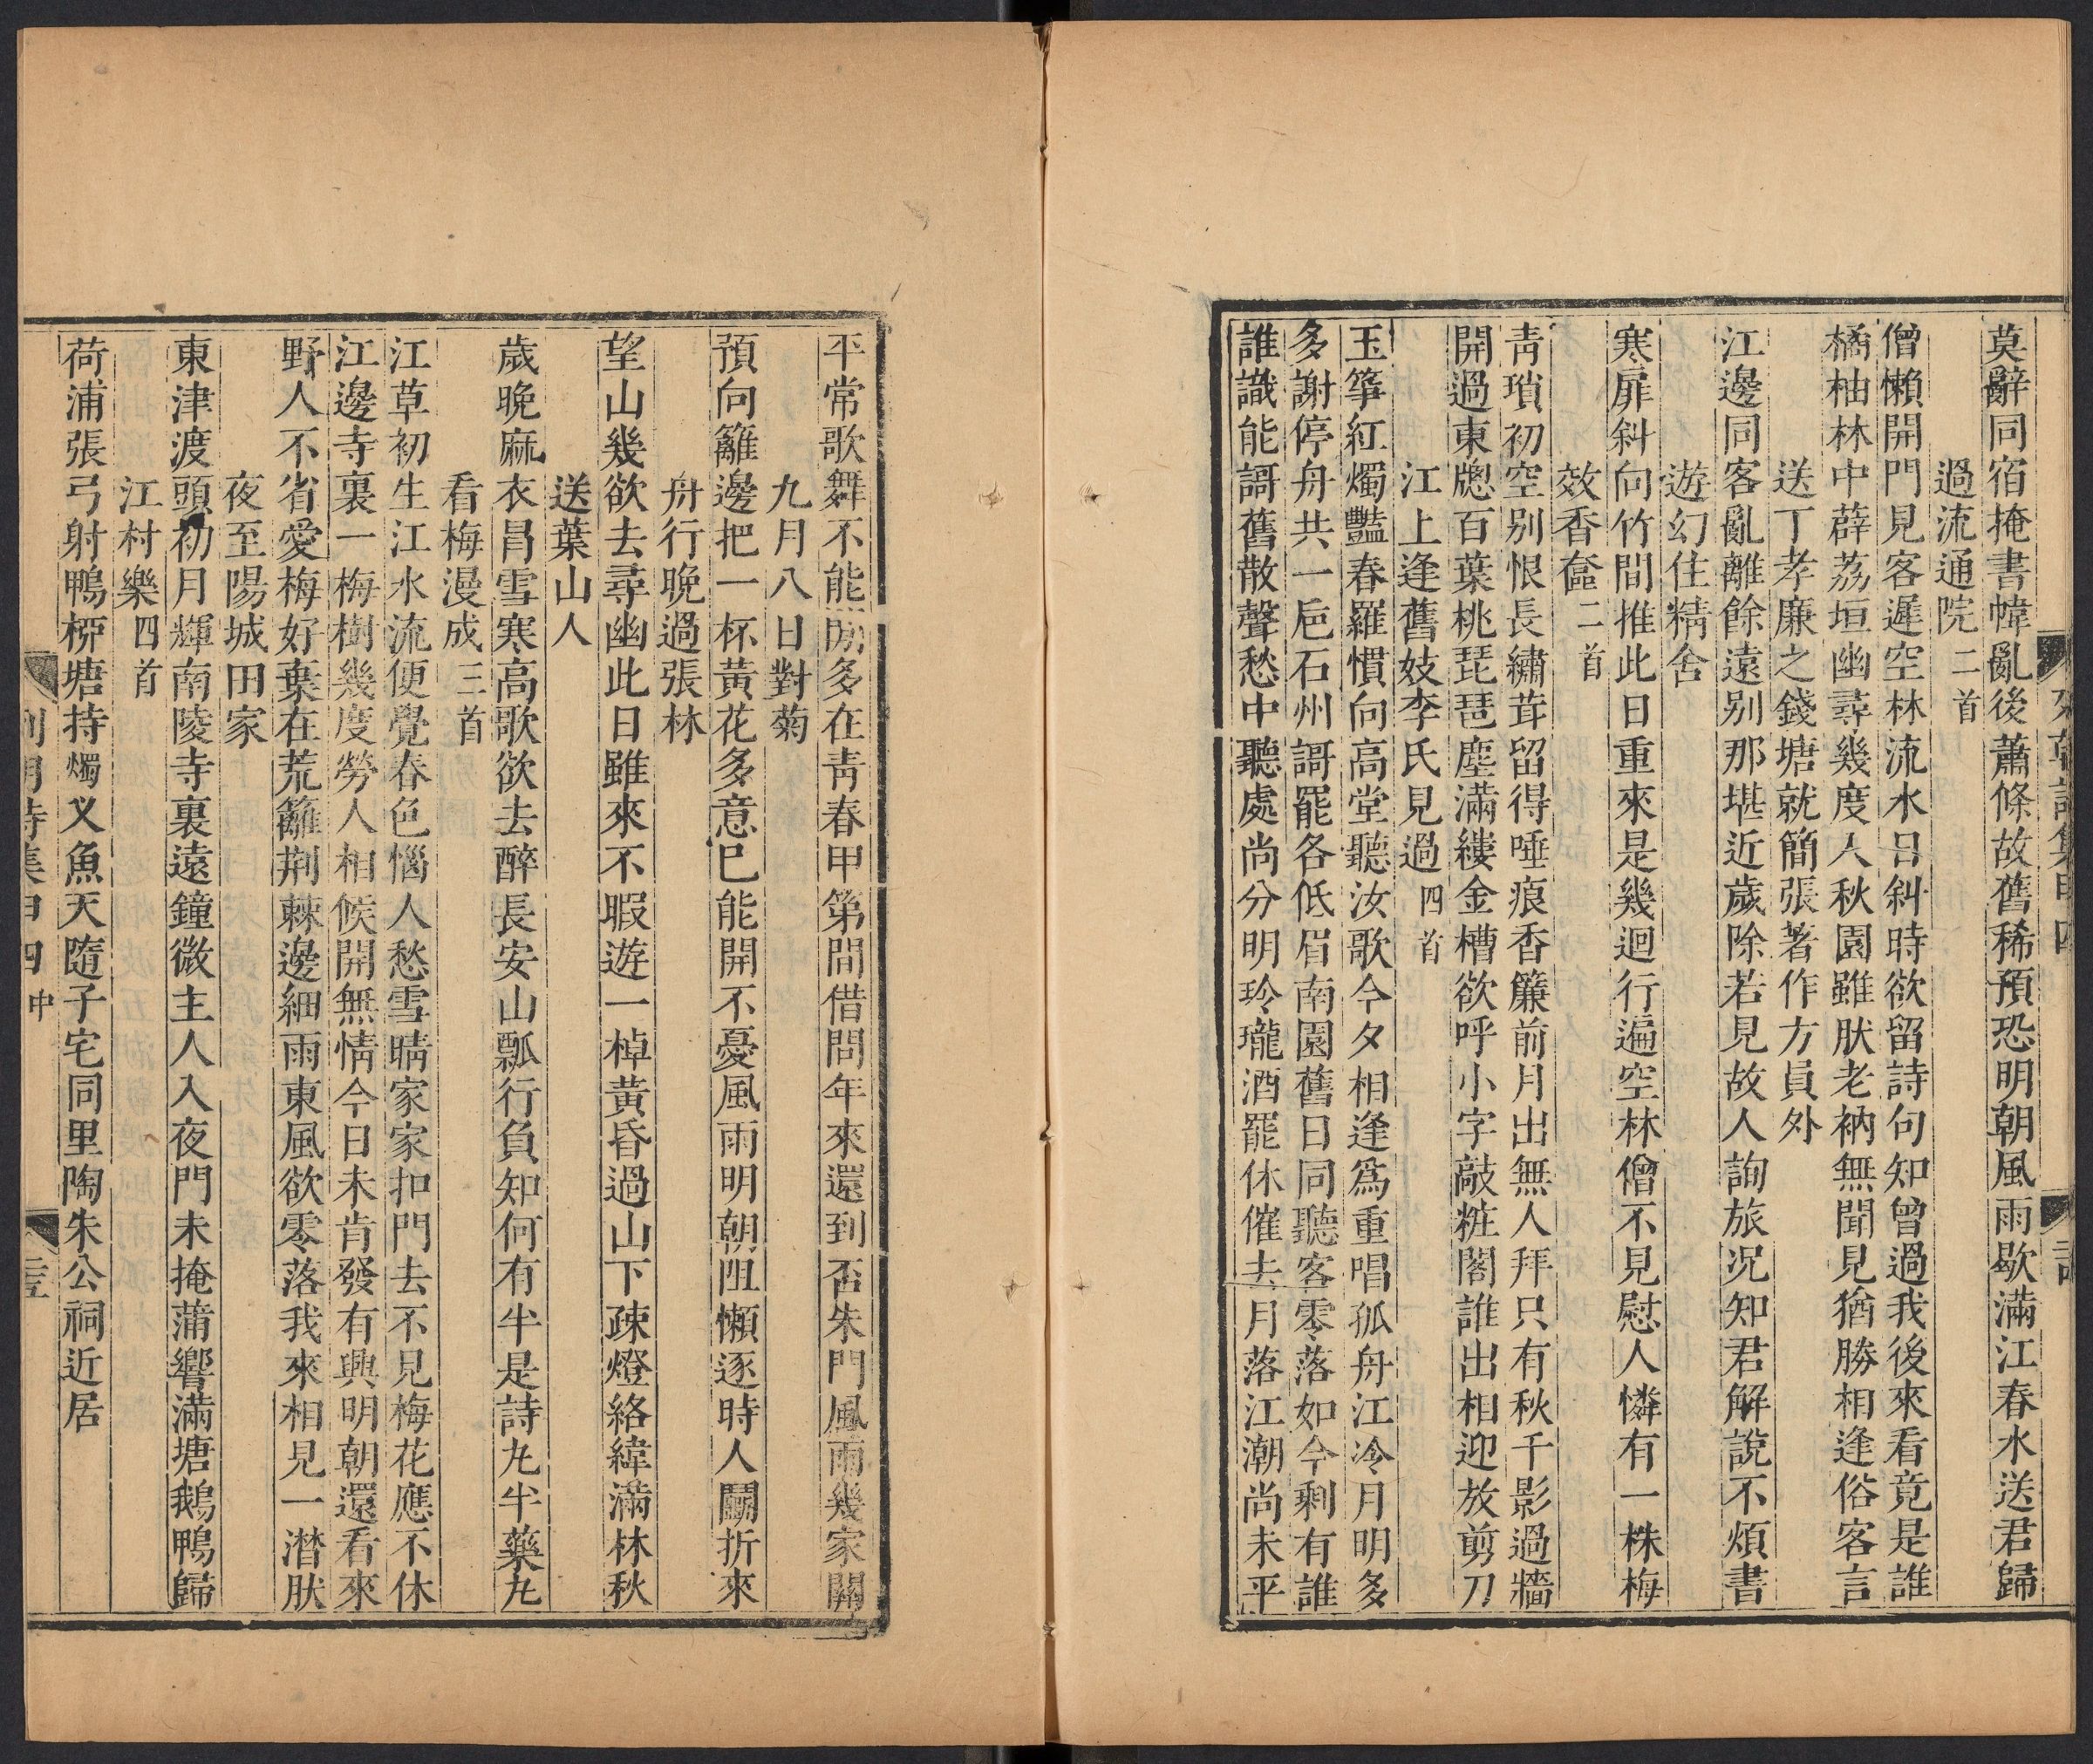 莫辭同宿掩書幃亂後蕭條故舊稀預恐明朝風雨歇滿江春水送君歸
過流通院二首
僧懶開門見客遲空林流水日斜時欲留詩句知曾過我後來看竟是誰
橘柚林中薜荔垣幽尋幾度人秋園雖肰老衲無聞見猶勝相逢俗客言
送丁孝廉之錢塘就簡張著作方員外
江邊同客亂離餘遠別那堪近歲除若見故人詢旅况知君解說不煩書
遊幻住精舍
寒扉斜向竹間推此日重來是幾迴行遍空林僧不見慰人憐有一株梅
效香奩二首
青瑣初空别恨長繡茸留得唾痕香簾前月出無人拜只有秋千影過牆
開過東牕百葉桃琵琶塵滿縷金槽欲呼小字敲粧閣誰出相迎放剪刀
江上逢舊妓李氏見過四首
玉筝紅燭豔春羅慣向高堂聽汝歌今夕相逢爲重唱孤舟江冷月明多
多謝停舟共一巵石州謌罷各低眉南園舊日同聽客零落如今剩有誰
誰識能謌舊散聲愁中聽處尚分明玲瓏酒罷休催去月落江潮尚未平
平常歌舞不能閑多在靑春甲第間借問年來還到否朱門風雨幾家關
九月八日對菊
預向籬邊把一杯黃花多意巳能開不憂風雨明朝阻懶逐時人鬭折來
舟行晚過張林
望山幾欲去尋幽此日雖來不暇遊一棹黃昏過山下疎燈絡緯滿林秋
送葉山人
歲晚麻衣昌雪寒高歌欲去醉長安山瓢行負知何有半是詩九半藥九
看梅漫成三首
江草初生江水流便覺春色惱人愁雪晴家家扣門去不見梅花應不休
江邊寺裏一梅樹幾度勞人相候開無情今日未肯發有興明朝還看來
野人不省愛梅好棄在荒籬荆棘邊細雨東風欲零落我來相見一潸肰
夜至陽城田家
東津渡頭初月輝南陵寺裏遠鐘微主人入夜門未掩蒲響滿塘鵝鴨歸
江村樂四首
荷浦張弓射鴨桺塘持燭叉魚天隨子宅同里陶朱公祠近居
列朝詩集甲四中